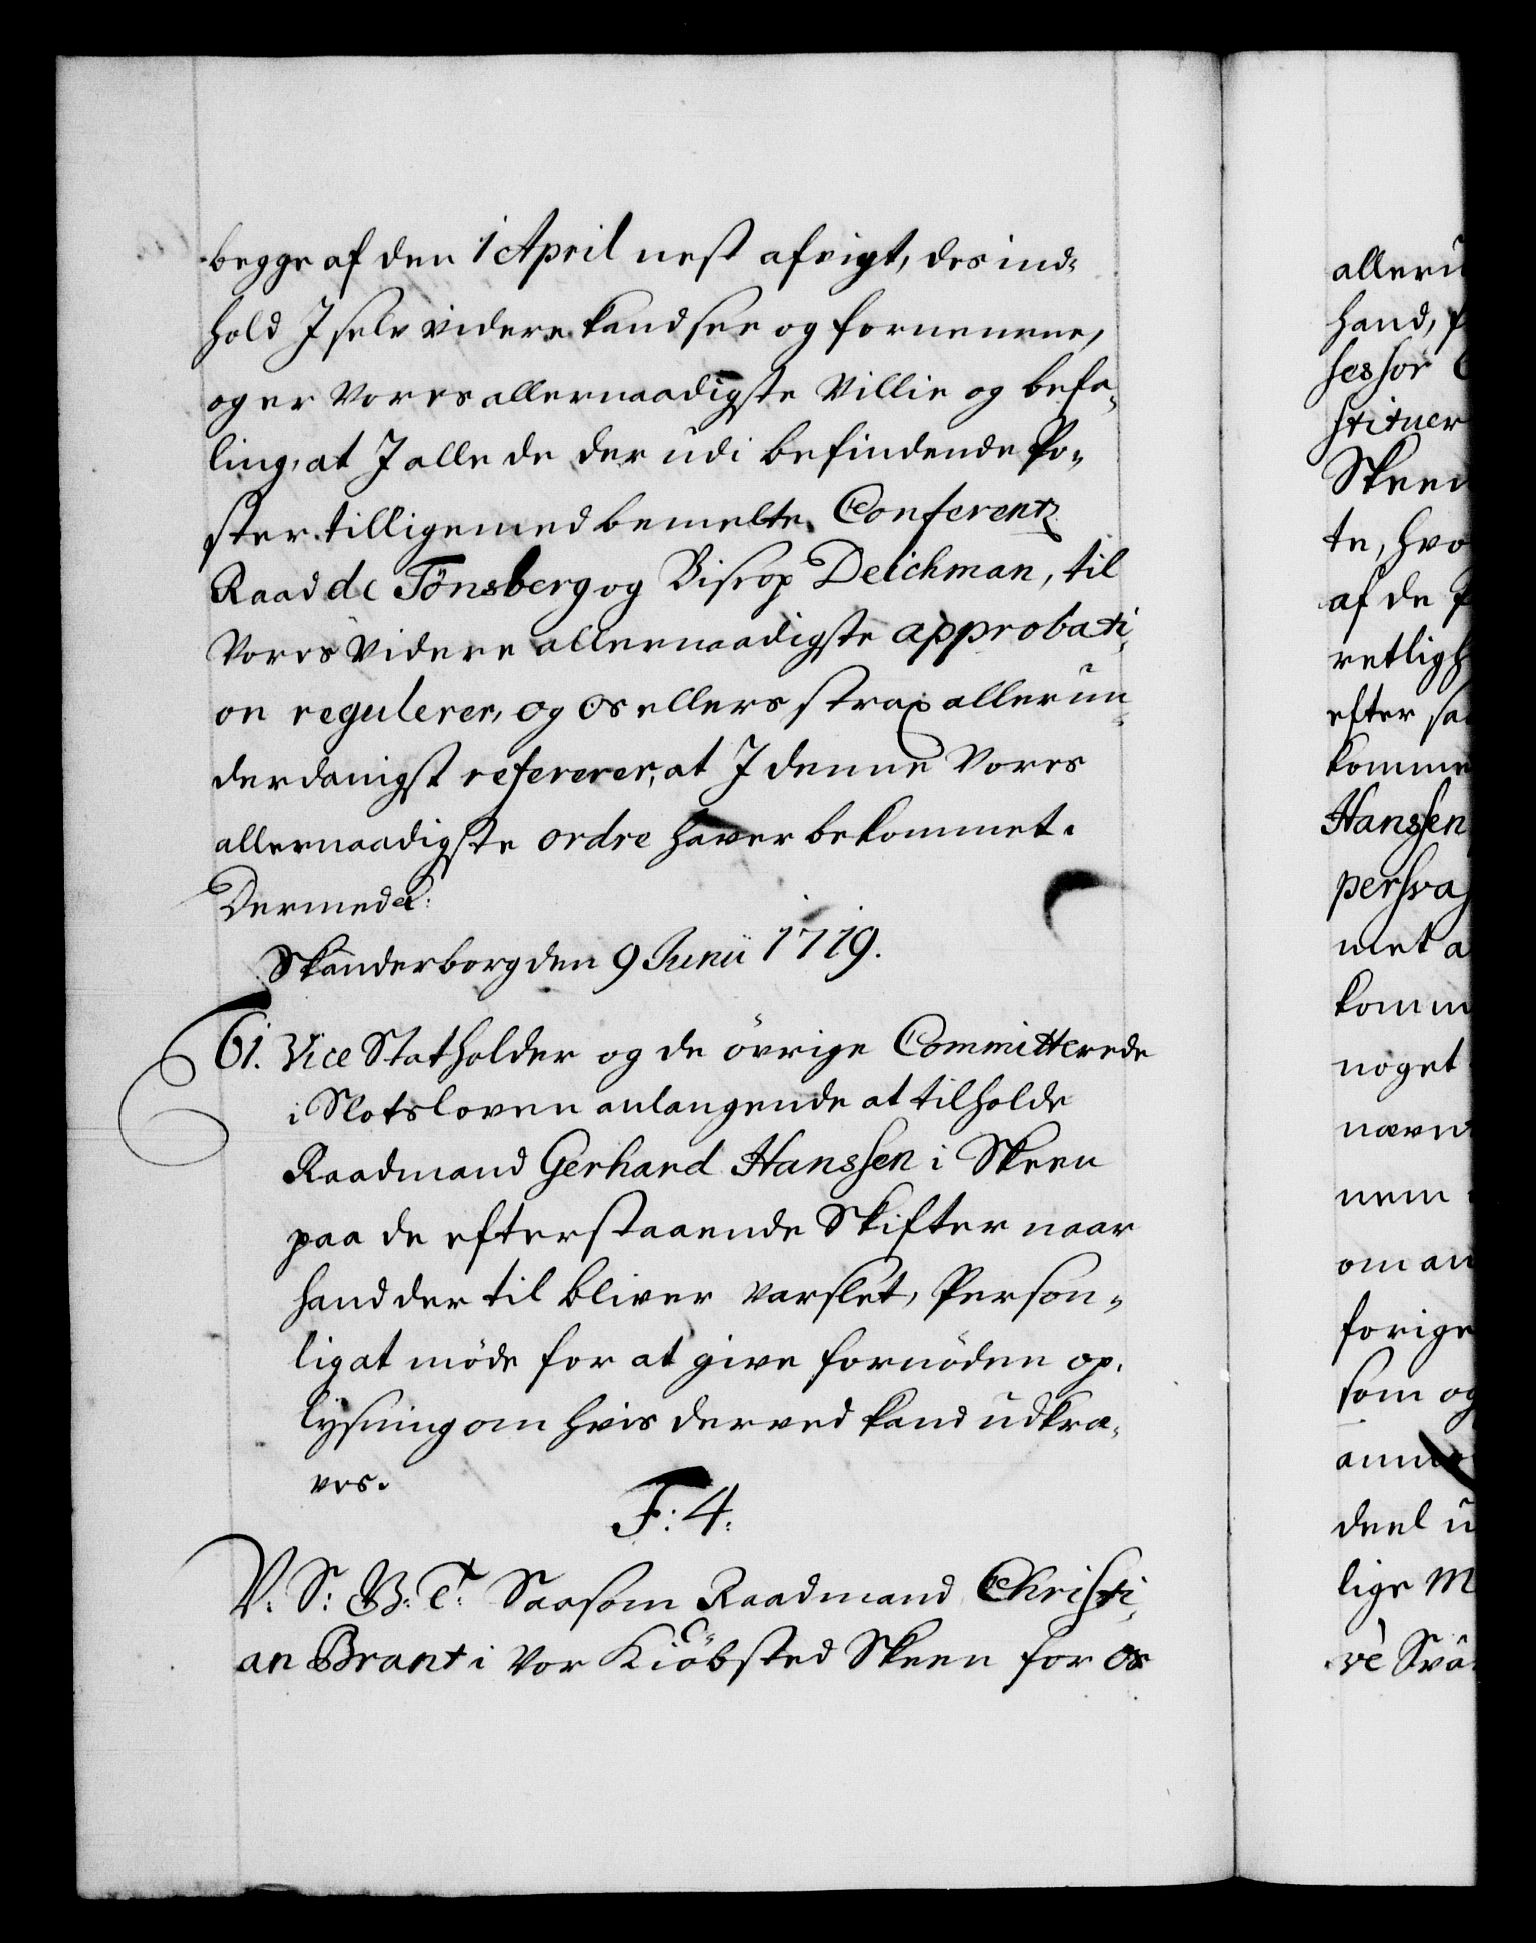 begge af den 1 April nest afvigt, des ind-
hold I selv videre kand see og fornemme,
og er Vores allernaadigste Villie og befa-
ling, at I alle de der udi befindende Po-
ster tilligemed bemelte Conferentz
Raad de Tönsberg og Biscop Deichman, til
Vores videre allernaadigste approbati-
on regulerer, og os ellers strax allerun-
derdanigst refererer, at I denne Vores
allernaadigste ordre haver bekommet.
Dermed &:
Skanderborg den 9 Junii 1719.
61. Vice Statholder og de övrige Committerede
i Slotsloven anlangende at tilholde
Raadmand Gerhard Hanssen i Skeen
paa de efterstaaende Skifter naar
hand der til bliver varslet, Person-
lig at möde for at give fornöden op-
lysning om hvis derved kand udkræ-
ves.
F: 4.
V. S: B: T: Saasom Raadmand Christi-
an Brant i Vor Kiöbsted Skeen for os
alleru
hand, f
sessor
stituer
Skeen
te, hvo
af de
retligh
efter sa
komme
Hanssen
persva
met a
komm
noget
nævn
nem
om an
forige
som og
anm
deel u
lige M
ve Sva